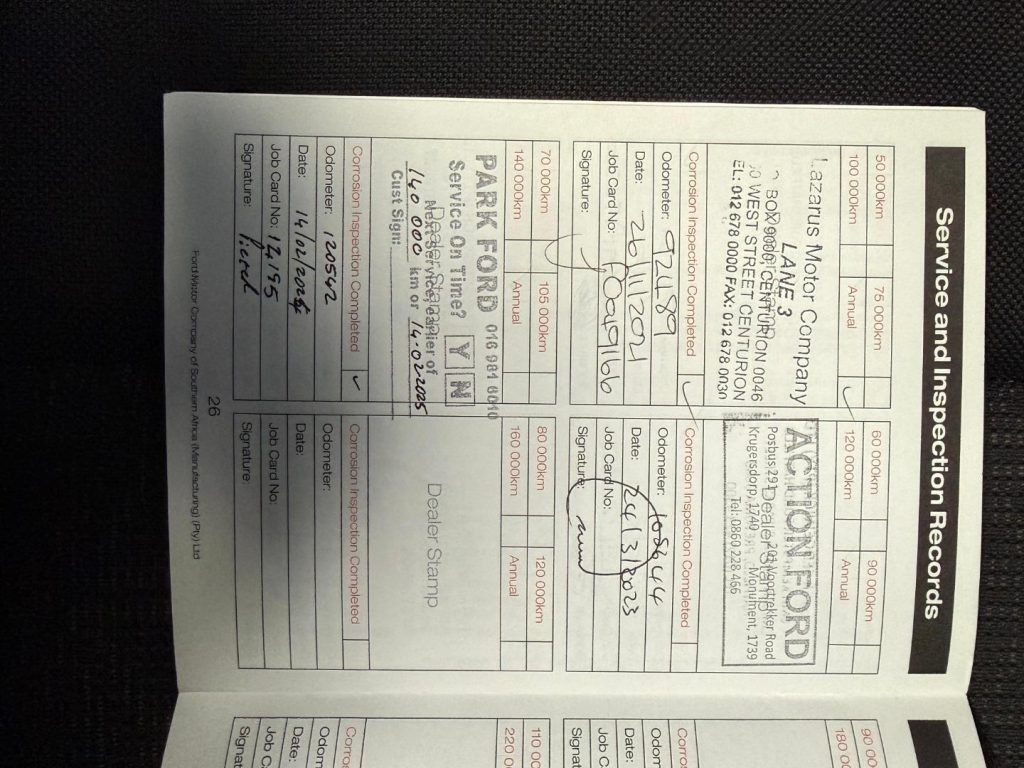 Service and Inspection Records
50 000km 75 000km
100 000km Annual ✓
Lazarus Motor Company
LANE 3
BOX 9000 CENTURION 0046
WEST STREET CENTURION
EL: 012 678 0000 FAX: 012 678 0030
Corrosion Inspection Completed ✓
Odometer: 92489
Date: 26/11/2021
Job Card No: F0049166
Signature:
60 000km 90 000km
120 000km Annual
ACTION FORD
Posbus 291 Voortrekker Road
Krugersdorp, 1740 Monument, 1739
Tel: 0860 228 466
Dealer Stamp
Corrosion Inspection Completed ✓
Odometer: 108644
Date: 24/3/2023
Job Card No:
Signature:
70 000km 105 000km
140 000km Annual
PARK FORD 016 981 6010
Service On Time? Y N
Dealer Stamp
Next Service, earlier of
140 000 km or 14.02.2025
Cust Sign:
Corrosion Inspection Completed ✓
Odometer: 120542
Date: 14/02/2024
Job Card No: 12195
Signature:
80 000km 120 000km
160 000km Annual
Dealer Stamp
Corrosion Inspection Completed
Odometer:
Date:
Job Card No:
Signature:
26
Ford Motor Company of Southern Africa (Manufacturing) (Pty) Ltd
90 00
180 00
Corro
Odom
Date:
Job C
Signat
110 00
220 0
Corro
Odom
Date:
Job C
Signat